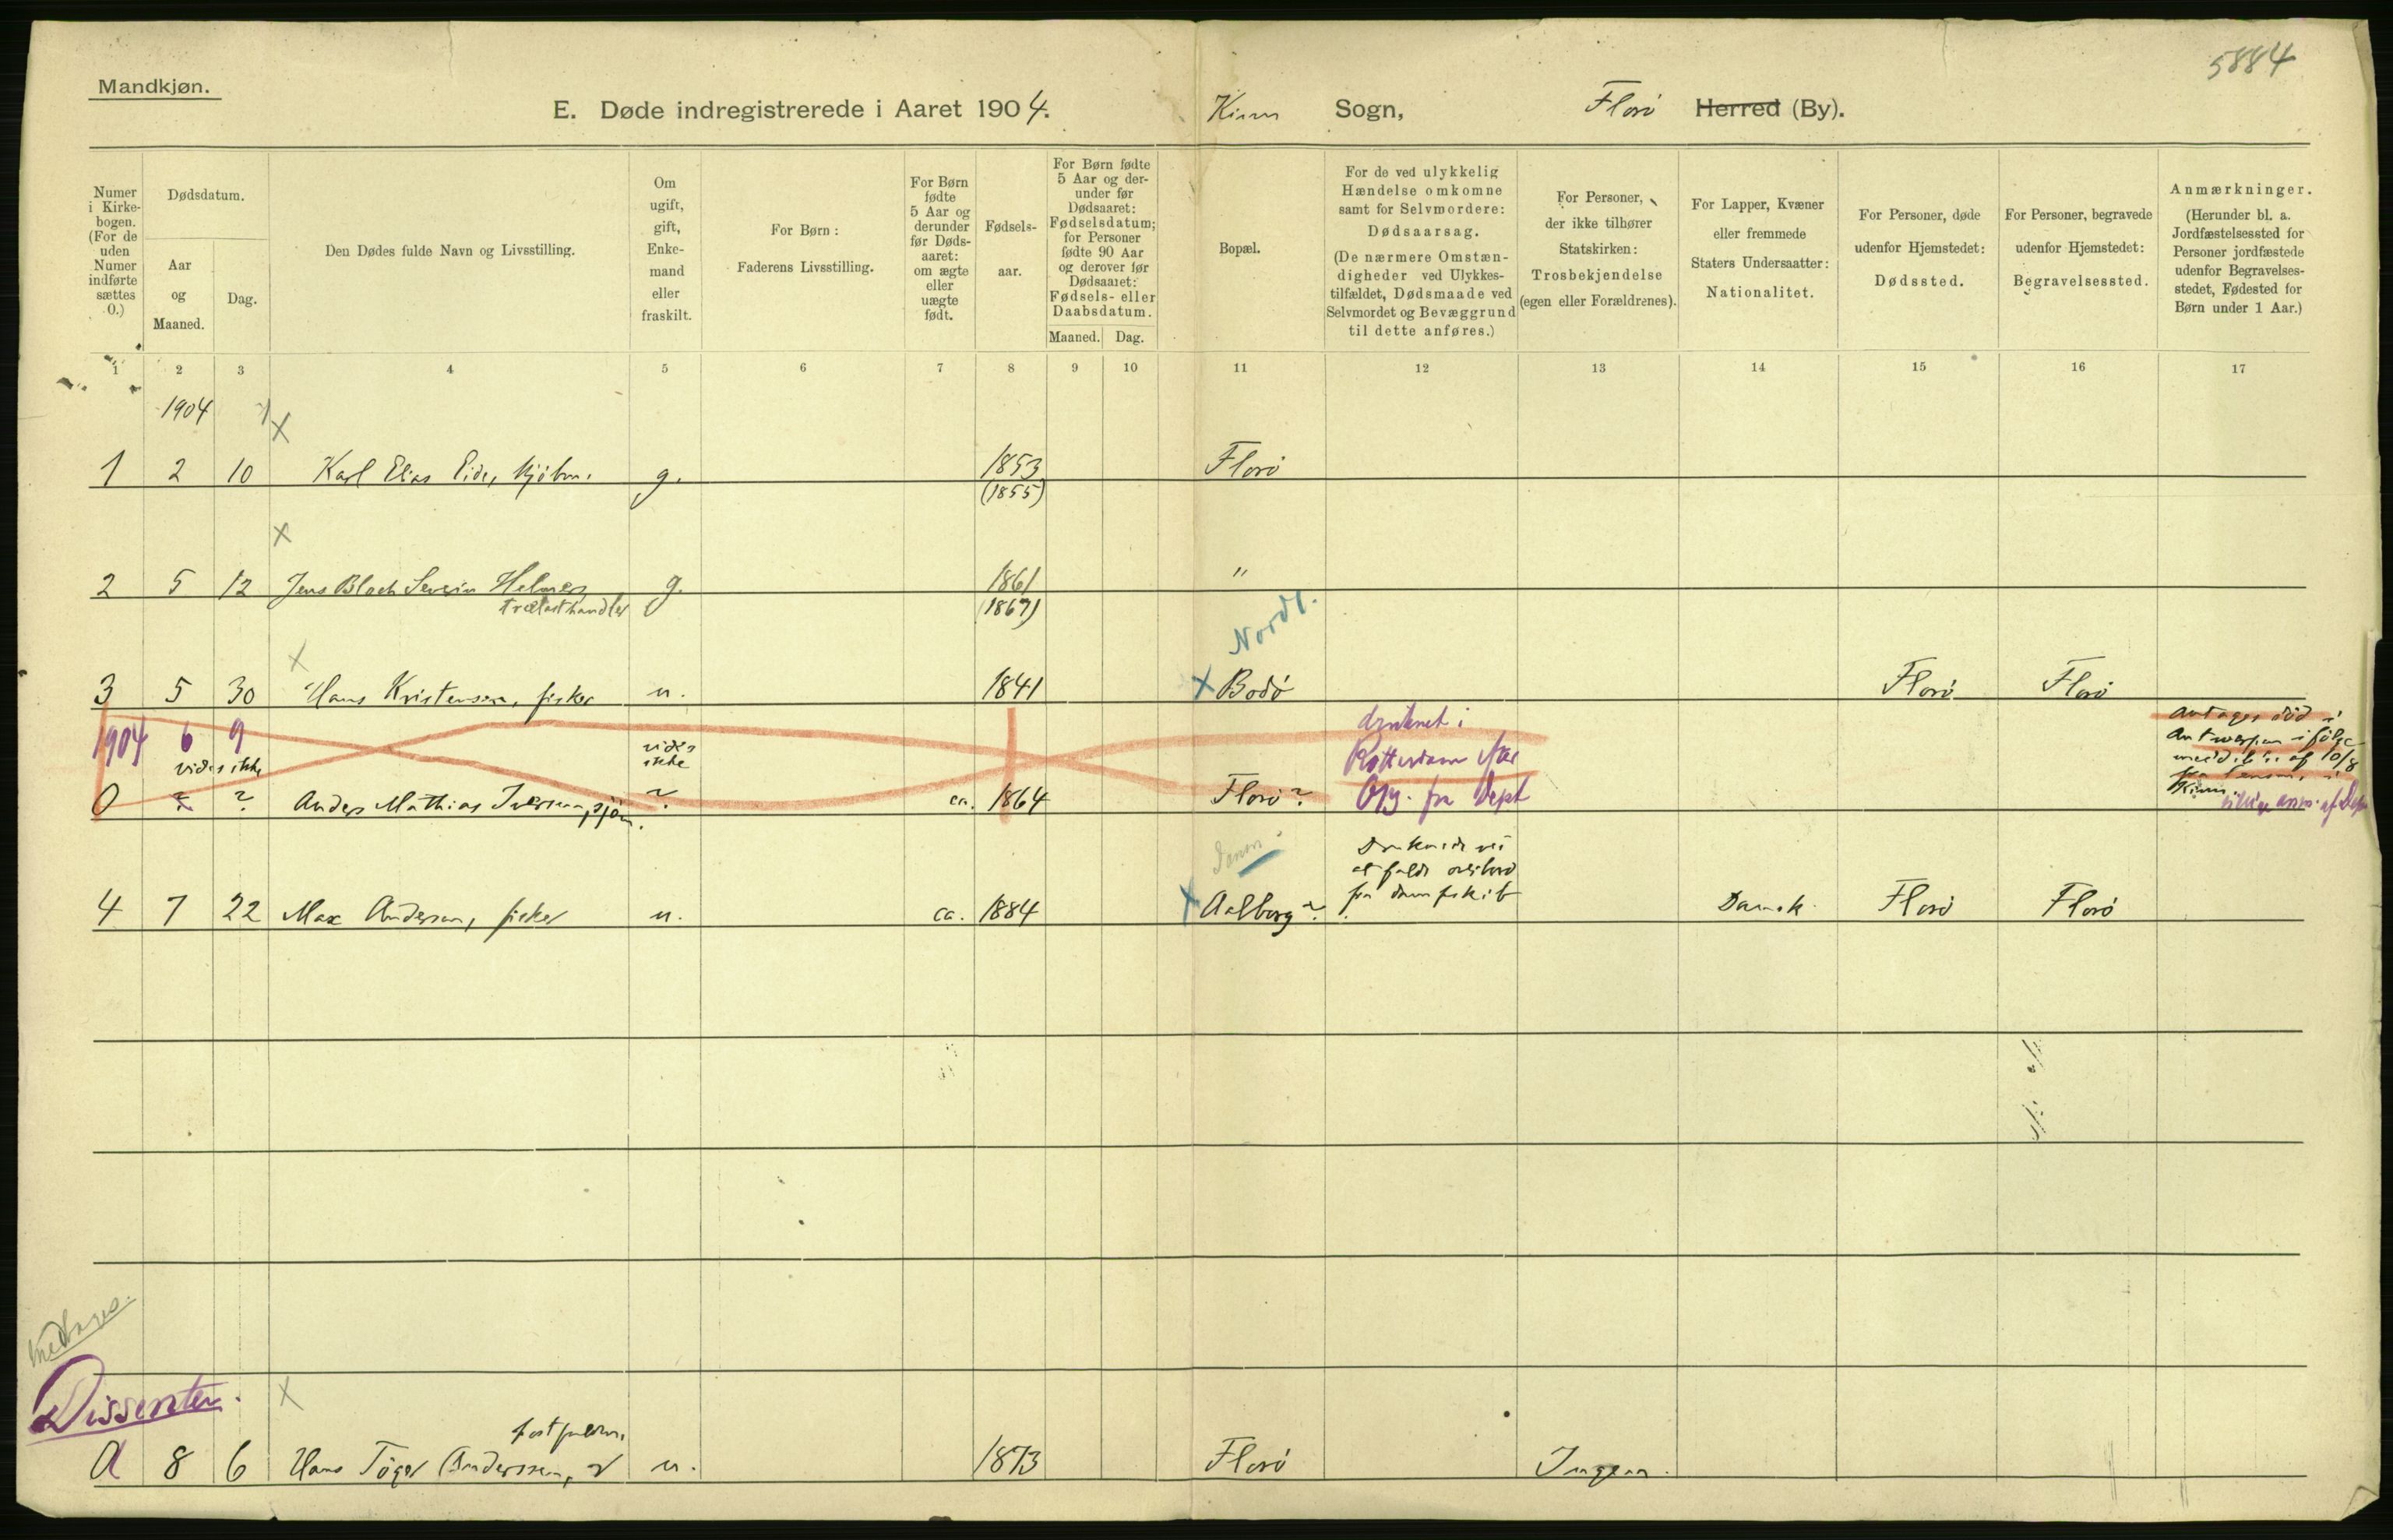 5884
Mandkjøn.
E. Døde indregistrerede i Aaret 1904. Kinn Sogn, Florø Herred (By).
Numer i Kirkebogen. (For de uden Numer indførte sættes 0.)
Dødsdatum.
Aar og Maaned.
Dag.
Den Dødes fulde Navn og Livsstilling.
Om ugift, gift, Enkemand eller fraskilt.
For Børn: Faderens Livsstilling.
For Børn fødte 5 Aar og derunder før Dødsaaret: om ægte eller uægte født.
Fødselsaar.
For Børn fødte 5 Aar og derunder før Dødsaaret: Fødselsdatum; for Personer fødte 90 Aar og derover før Dødsaaret: Fødsels- eller Daabsdatum.
Maaned. Dag.
Bopæl.
For de ved ulykkelig Hændelse omkomne samt for Selvmordere: Dødsaarsag. (De nærmere Omstændigheder ved Ulykkestilfældet, Dødsmaade ved Selvmordet og Bevæggrund til dette anføres.)
For Personer, der ikke tilhører Statskirken: Trosbekjendelse (egen eller Forældrenes).
For Lapper, Kvæner eller fremmede Staters Undersaatter: Nationalitet.
For Personer, døde udenfor Hjemstedet: Dødssted.
For Personer, begravede udenfor Hjemstedet: Begravelsessted.
Anmærkninger. (Herunder bl. a. Jordfæstelsessted for Personer jordfæstede udenfor Begravelsesstedet, Fødested for Børn under 1 Aar.)
1 2 3 4 5 6 7 8 9 10 11 12 13 14 15 16 17
1904
X
1 2 10 Karl Elias Eide, kjøbm. g. 1853 Florø
(1855)
X
2 5 12 Jens Bloch Severin Helmers g. 1861 "
trælasthandler (1867)
Nordl.
X
3 5 30 Hans Kristensen, fisker u. 1841 X Bodø Florø Florø
1904 6 9 druknet i
vides ikke vides ikke Rotterdam
0 ? ? Anders Mathias Iversen, sjøm. ? ca. 1864 Florø? Opg. fra Dept
Antages død i
Antwerpen ifølge
af 10/8
fra
Kinn. af Dept
Druknede ved
at falde overbord
fra dampskib
4 7 22 Max Andersen, fisker u. ca. 1884 X Aalborg? Dansk Florø Florø
Medtages.
Dissenter.
X
0 8 6 Hans Tøger Anderssen, u. 1873 Florø Ingen.